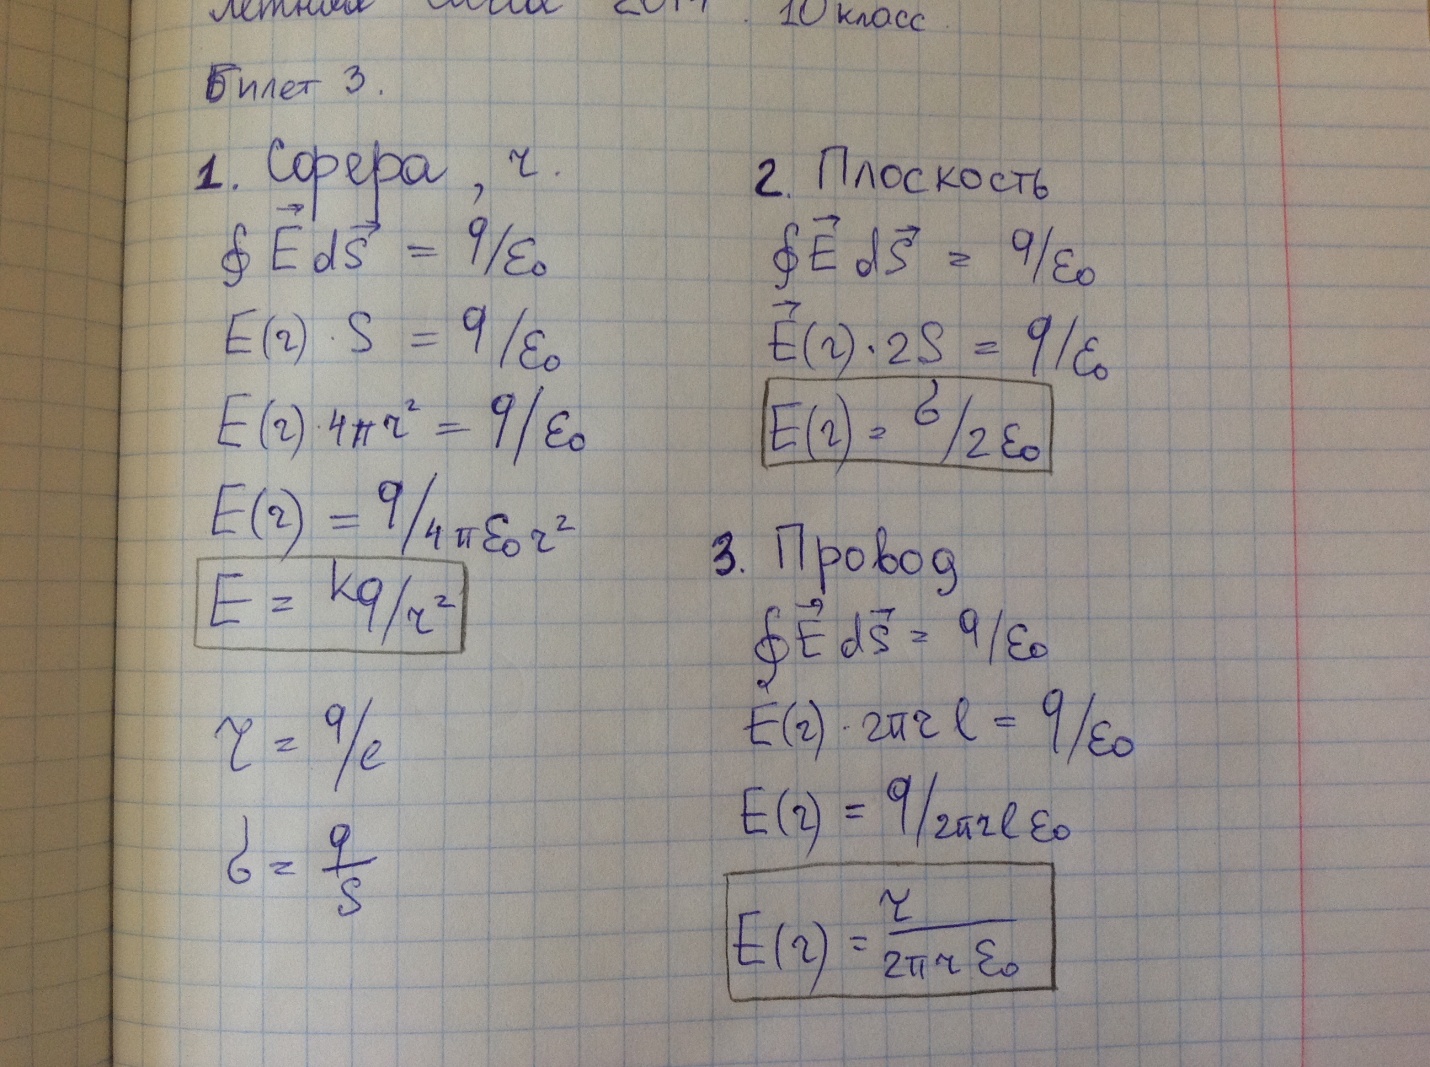 10 класс.
Билет 3.
1. Сфера, r.
∮ E⃗ dS⃗ = q/ε₀
E(r) · S = q/ε₀
E(r) · 4πr² = q/ε₀
E(r) = q/4πε₀r²
E = kq/r²
τ = q/l
σ = q/S
2. Плоскость
∮ E⃗ dS⃗ = q/ε₀
E⃗(r) · 2S = q/ε₀
E(r) = σ/2ε₀
3. Провод
∮ E⃗ dS⃗ = q/ε₀
E(r) · 2πrl = q/ε₀
E(r) = q/2πrlε₀
E(r) = τ/2πrε₀